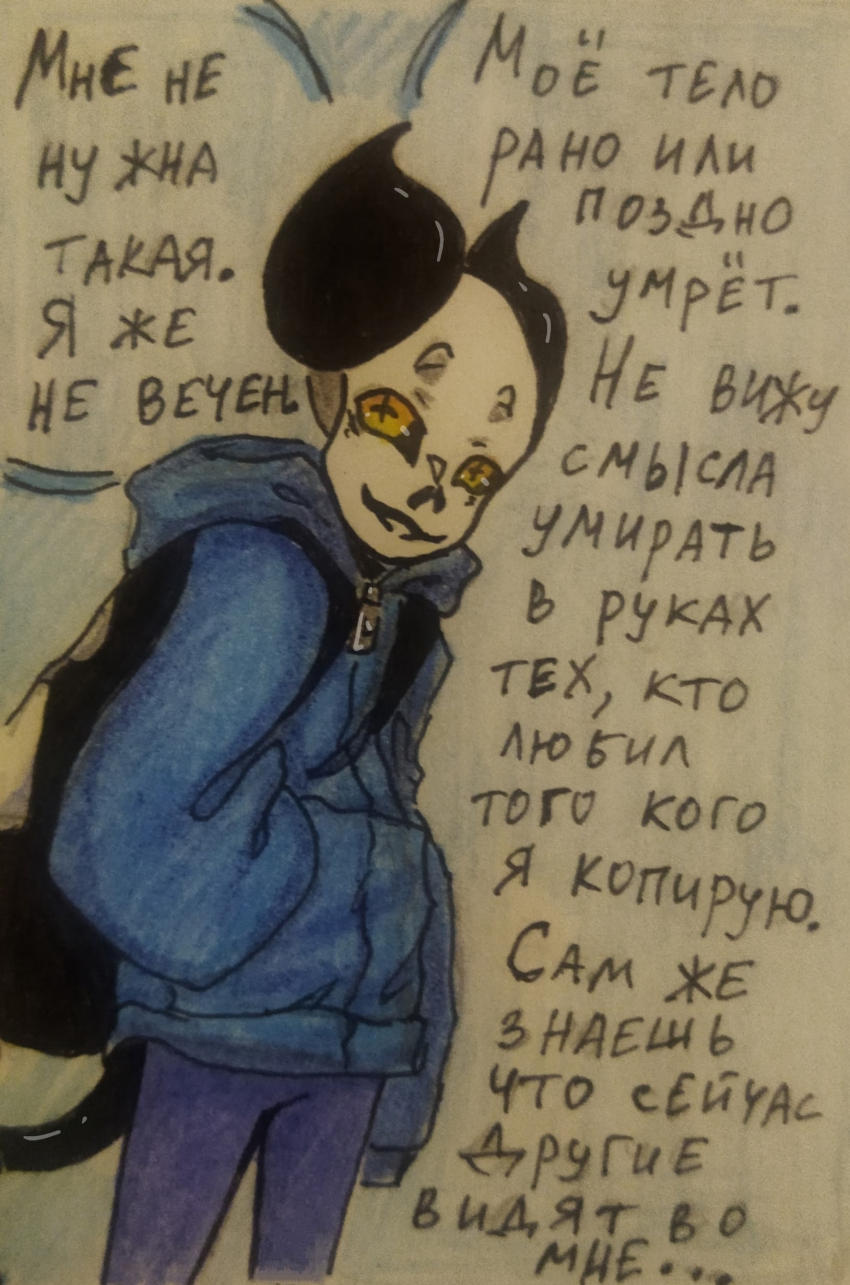 Мне не
нужна
такая.
Я же
не вечен.
Моё тело
рано или
поздно
умрёт.
Не вижу
смысла
умирать
в руках
тех, кто
любил
того кого
я копирую.
Сам же
знаешь
что сейчас
другие
видят во
мне...